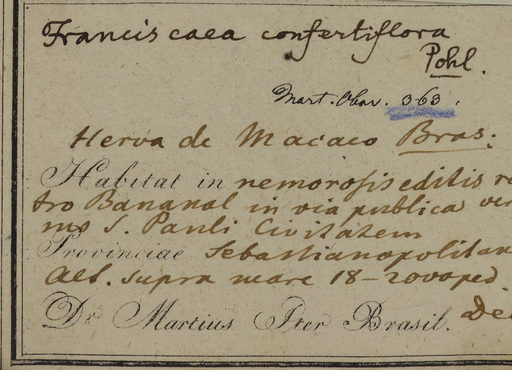 Franciscaea confertiflora
Pohl.
Mart. Obs. 363.
Herva de Macaco Bras.
Habitat in nemorosis editis
tro Bananal in via publica
S. Pauli Civitatem
Provinciae Sebastianopolitan
Alt. supra mare 18-2000 ped.
Dr. Martius Iter Brasil. Dec